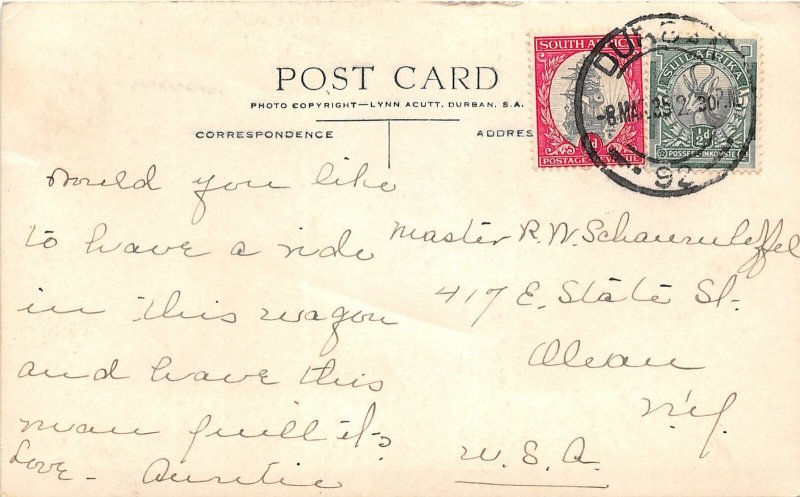 POST CARD
PHOTO COPYRIGHT—LYNN ACUTT, DURBAN, S.A.
CORRESPONDENCE
ADDRES
SOUTH AFRICA
POSTAGE
SUIDAFRIKA
½d
POSSEËL-INKOMSTE
DURBAN
-8 MAR 35 2 30 PM
92
Would you like
to have a ride
in this wagon
and have this
man pull it?
Love - Auntie
Master R. W.
417 E. State St.
Olean
N.Y.
U.S.A.